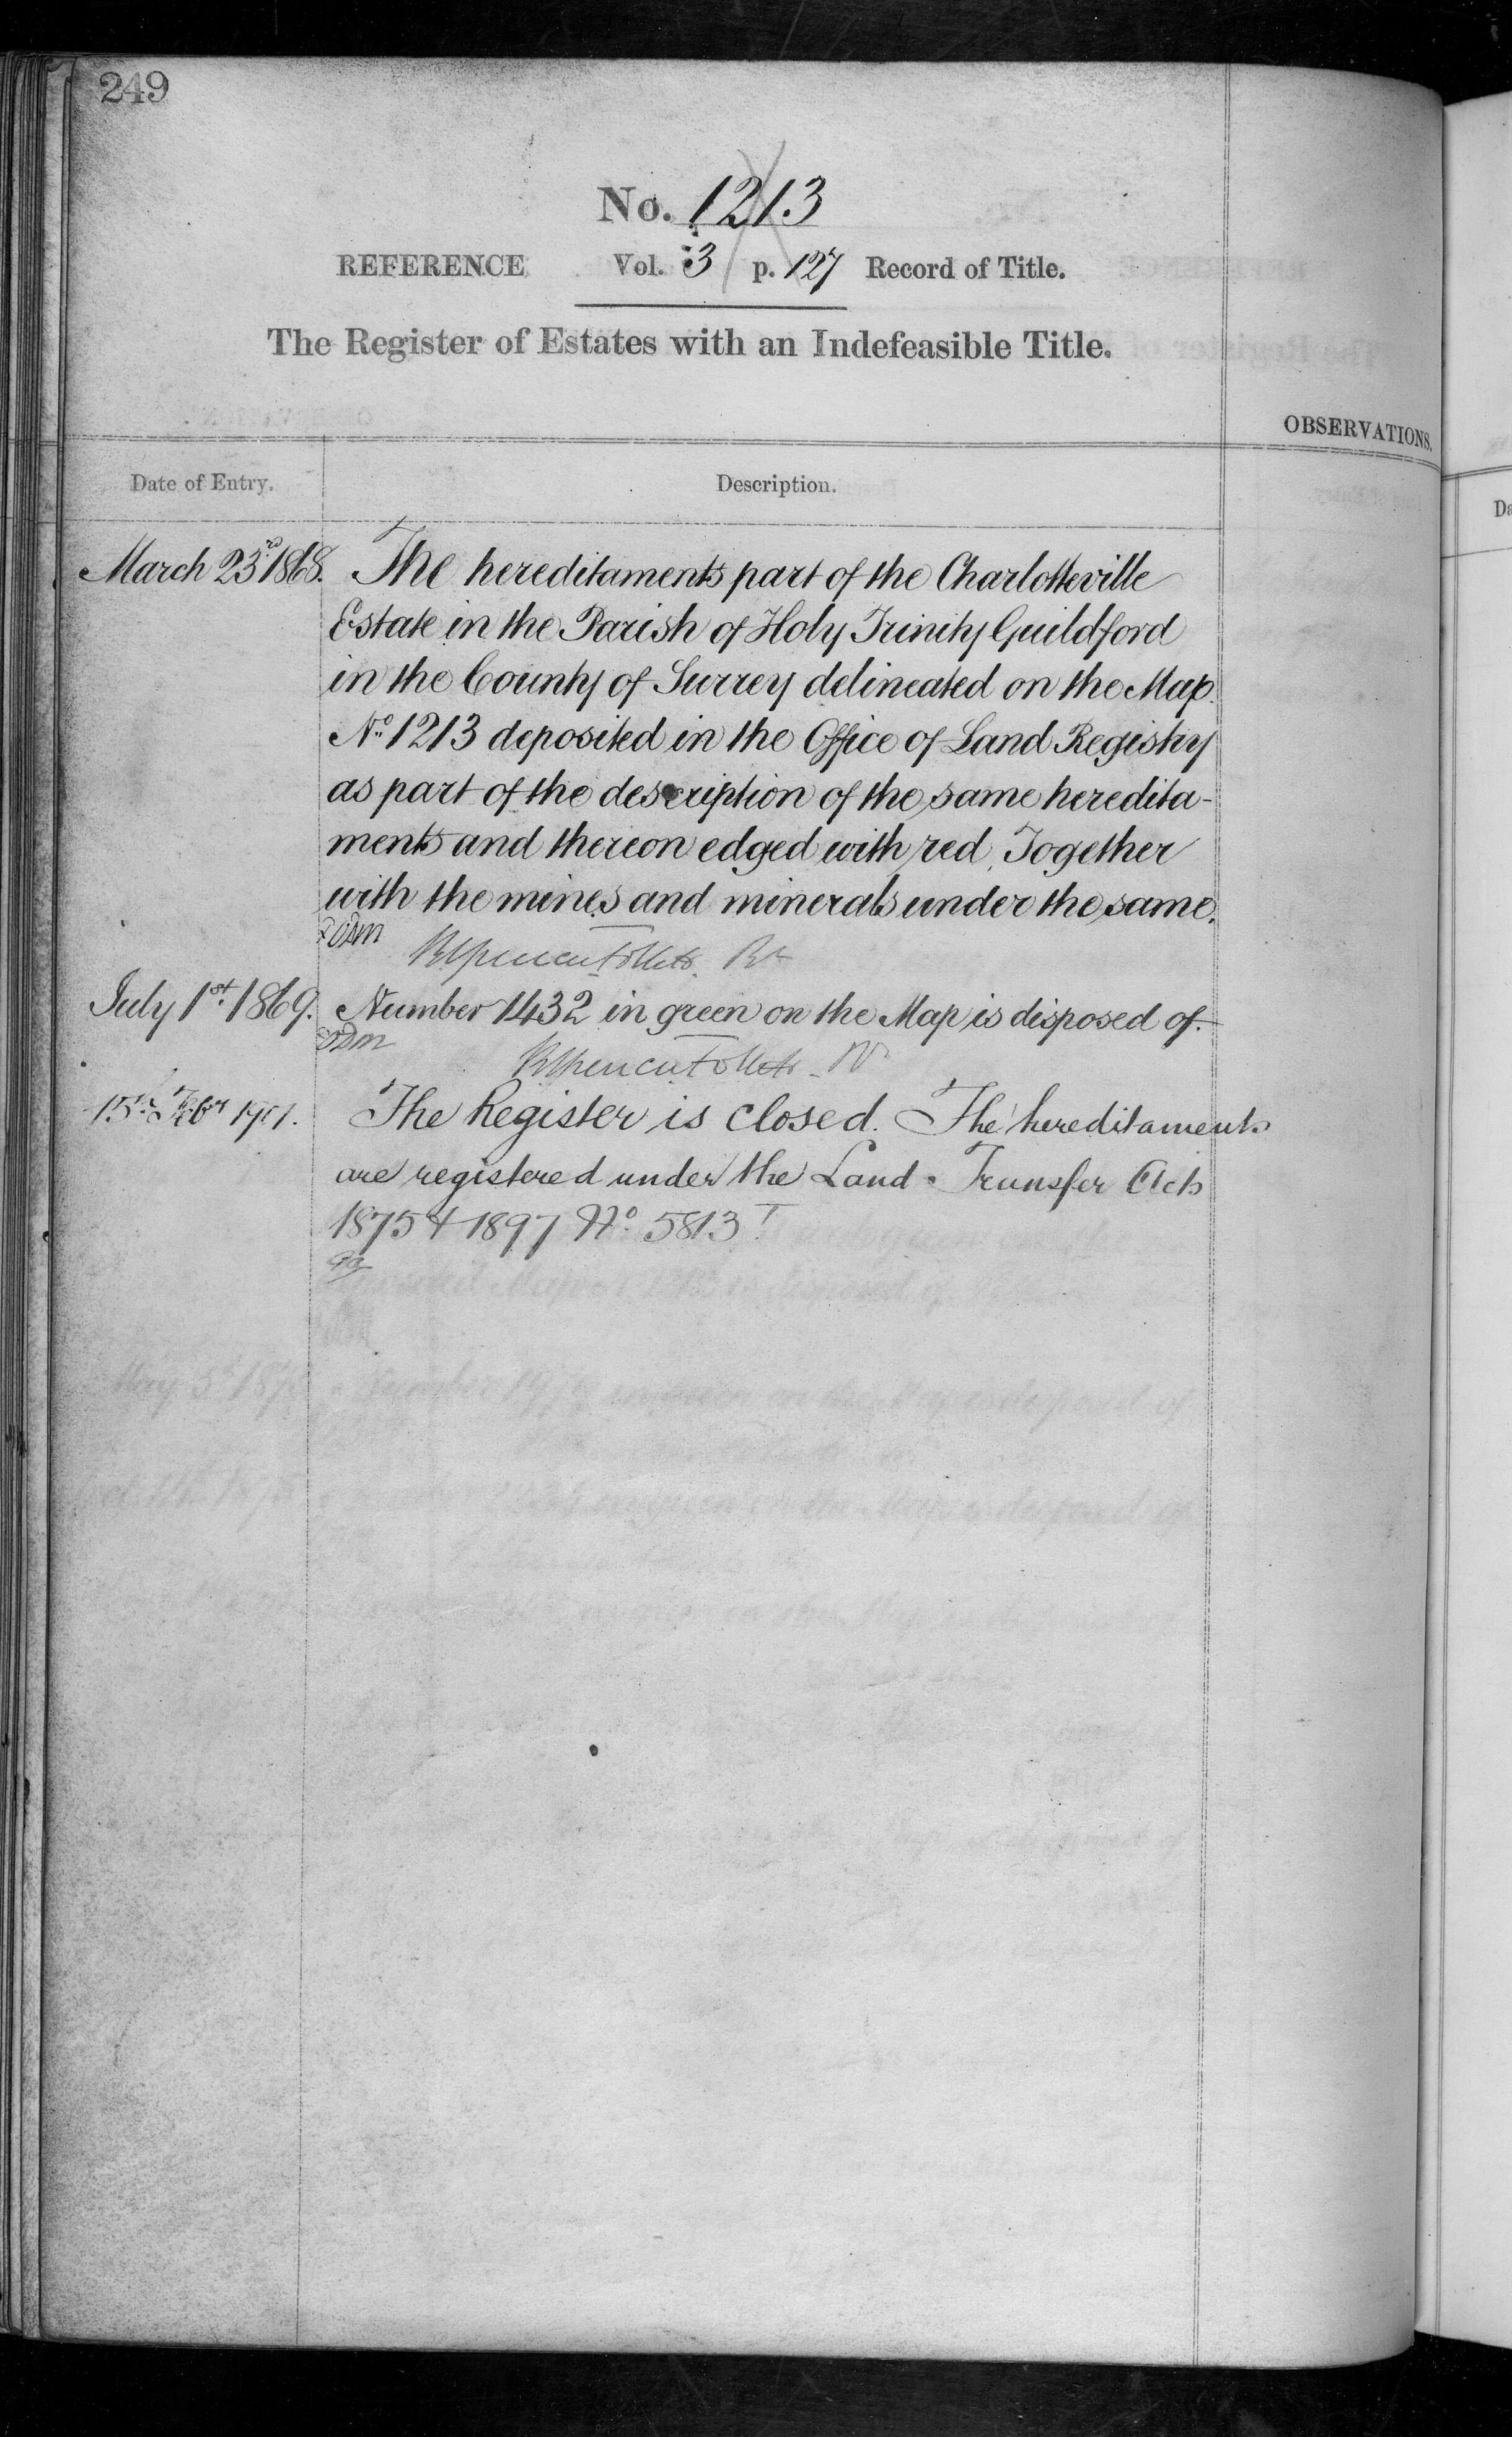 249
No. 1213
REFERENCE Vol. 3 p. 127 Record of Title.
The Register of Estates with an Indefeasible Title.
OBSERVATIONS.
Date of Entry. Description.
March 23rd 1868. The hereditaments part of the Charlotteville
Estate in the Parish of Holy Trinity Guildford
in the County of Surrey delineated on the Map
No 1213 deposited in the Office of Land Registry
as part of the description of the same heredita-
ments and thereon edged with red, Together
with the mines and minerals under the same.
July 1st 1869. Number 1432 in green on the Map is disposed of.
15th Febry 1901. The Register is closed. The hereditaments
are registered under the Land Transfer Acts
1875 & 1897 No. 5813